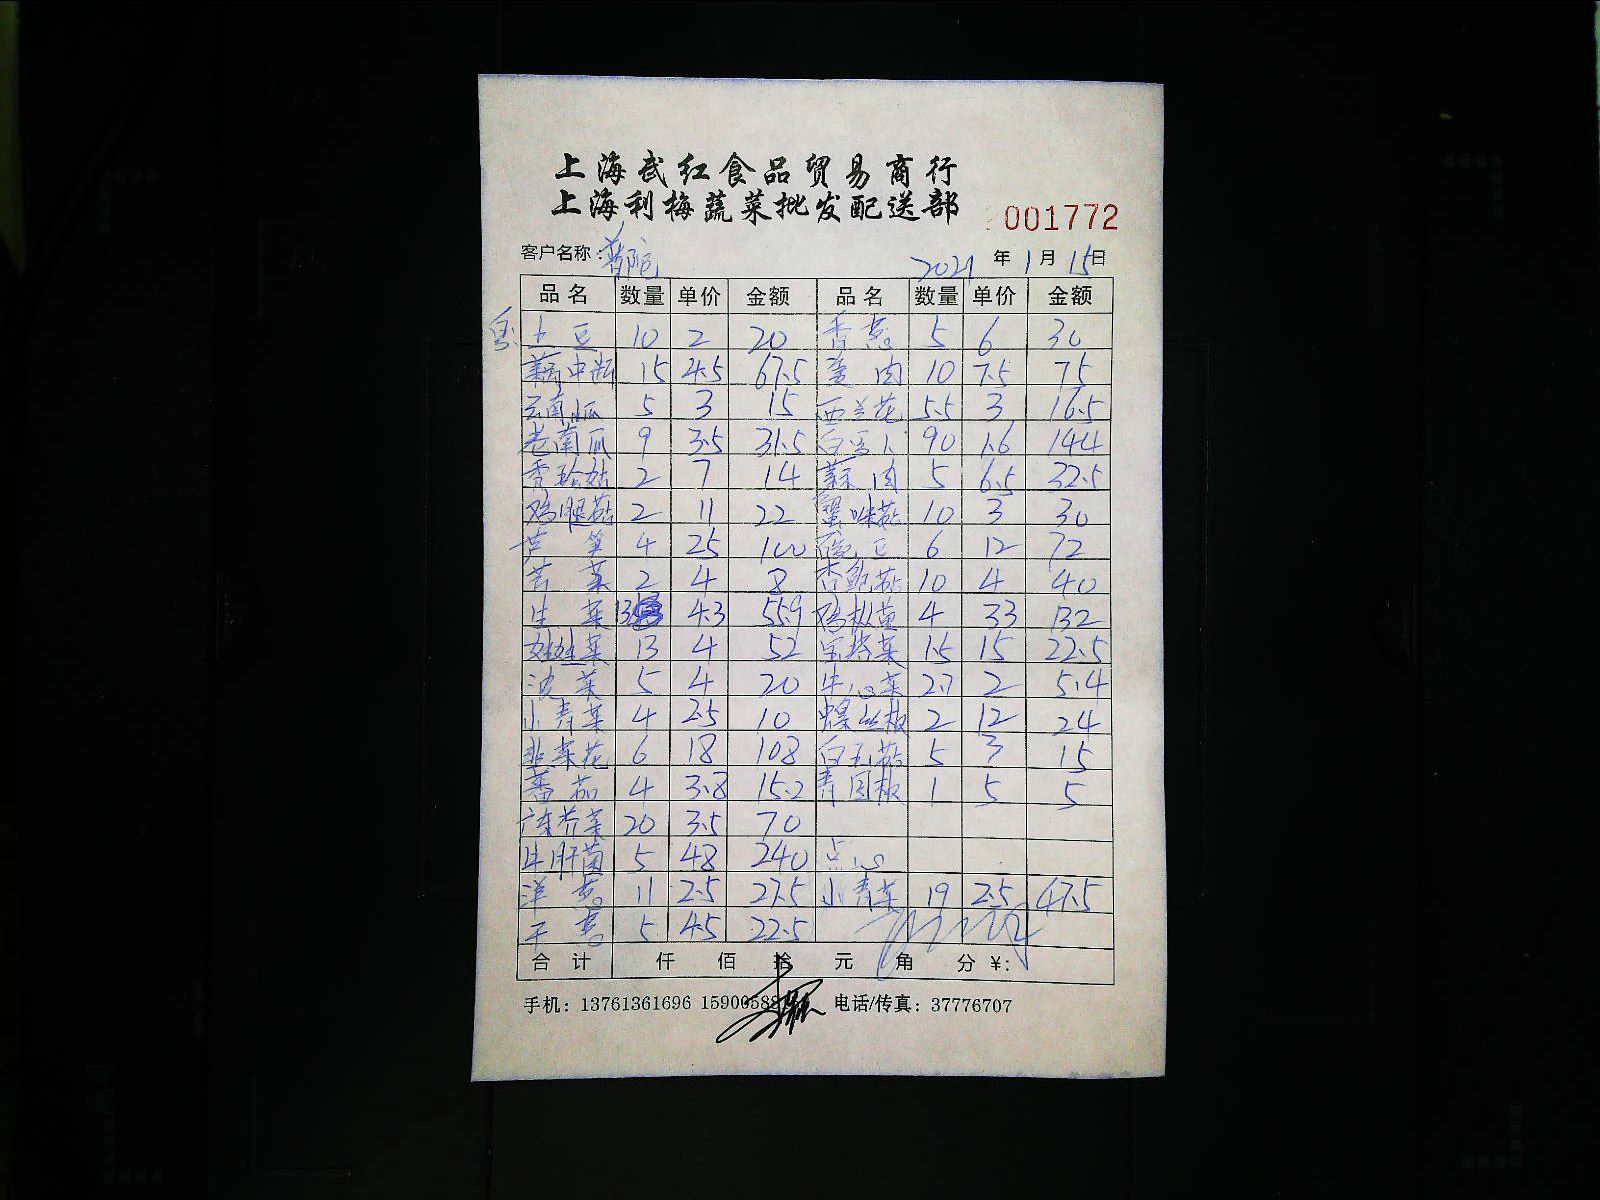 上海武红食品贸易商行
上海利梅蔬菜批发配送部
001772
客户名称: 普陀 2021 年 1 月 15 日
品名 数量 单价 金额 品名 数量 单价 金额
土豆 10 2 20 香葱 5 6 30
15 4.5 67.5 姜肉 10 7.5 75
云南瓜 5 3 15 西兰花 5.5 3 16.5
老南瓜 9 3.5 31.5 白 90 1.6 144
香珍菇 2 7 14 蒜肉 5 6.5 32.5
鸡腿菇 2 11 22 蟹味菇 10 3 30
芦笋 4 25 100 豌豆 6 12 72
2 4 8 杏鲍菇 10 4 40
生菜 13 4.3 55.9 鸡枞菌 4 33 132
娃娃菜 13 4 52 宝塔菜 1.5 15 22.5
菠菜 5 4 20 牛心菜 2.7 2 5.4
小青菜 4 2.5 10 螺丝椒 2 12 24
韭菜花 6 18 108 白玉菇 5 3 15
蕃茄 4 3.8 15.2 青圆椒 1 5 5
广东芥菜 20 3.5 70
牛肝菌 5 48 240 点心
洋葱 11 2.5 27.5 小青菜 19 2.5 47.5
平 5 4.5 22.5
合计 仟 佰 拾 元 角 分 ¥:
手机: 13761361696 15900588 电话/传真: 37776707